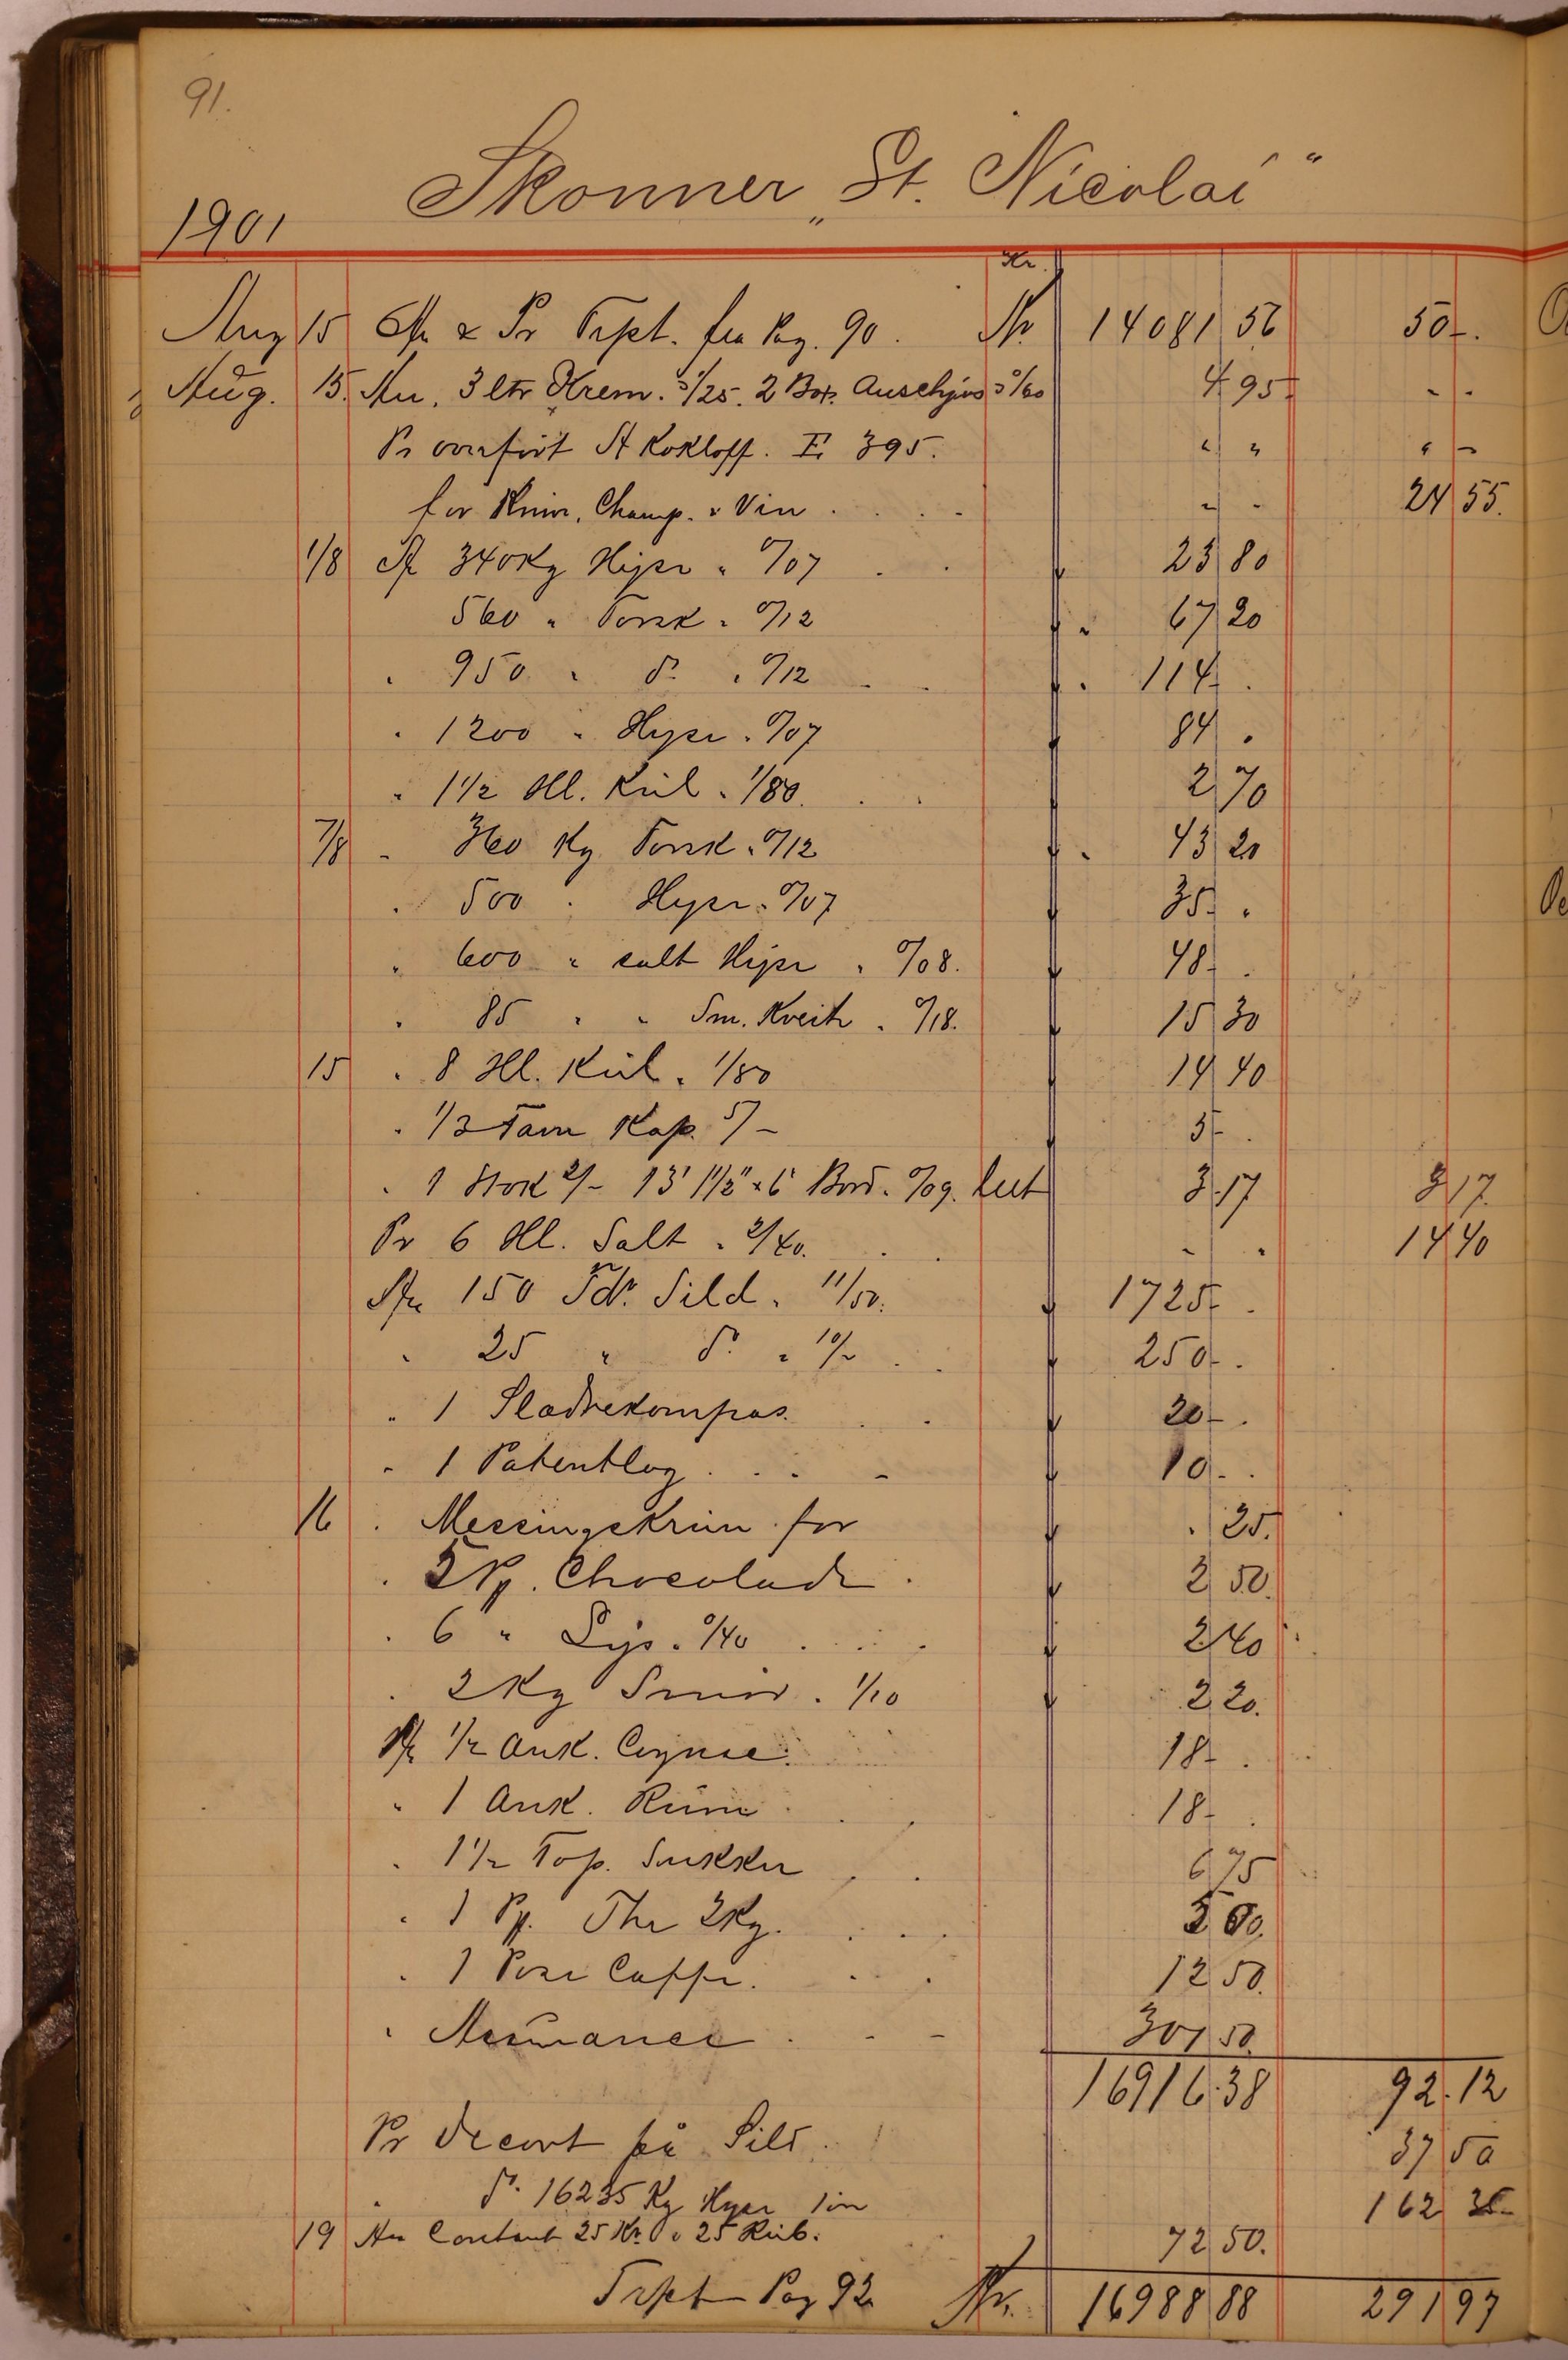 91.
Skonner „St. Nicolai“
1901
Kr.
Aug 15 An & Pr Trpt. fra Pag. 90. Kr. 14081 56 50 -.
Aug. 15. An. 3 ltr Krem. 1/25. 2 Box. Anschjos 0/60 4 95 - -
Pr overført St Kokloff. F. 395. " " " -
for Skiver, Champ. & Vin . . . . - - 24 55.
1/8 An 340 Kg Hyse " 0/07 . . 23 80
560 " Torsk " 0/12 " 67 20
" 950 " do " 0/12 " 114 - .
" 1200 " Hyse " 0/07 84 .
" 1 1/2 Hl. Kul " 1/80. . . 2 70
7/8 " 360 Kg Torsk " 0/12 " 43 20
" 500 " Hyse " 0/07 35 - .
" 600 " salt Hyse " 0/08. 48 - .
" 85 " " Sm. Kveite " 0/18. 15 30
15 " 8 Hl. Kul " 1/80 14 40
" 1/2 Favn Kap. 5/- 5 - .
" 1 Stok 2/- 13' 1 1/2" x 6" Bord " 0/09. 3 17 3 17
Pr 6 Hl. Salt " 2/40. . . - . 14 40
An 150 Tdr. Sild " 11/50. 1725 - .
" 25 " do " 10/- . . 250 - .
" 1 Sladrekompas. . . 20 - .
" 1 Patentlog . . . - 10 - .
16 " Messingskruer for . 25.
" 5 Pk. Chocolade . 2 50.
" 6 " Lys " 0/40 . . . 2 40
" 2 Kg Smør " 1/10 2 20.
An 1/2 Ank. Cognac. 18 - .
" 1 Ank. Rum . . . 18 - .
" 1 1/2 Top. Sukker . . 6 75
" 1 Pk. The 2 Kg. . . . 5 60.
" 1 Pose Caffe. . . . 12 50.
" Assurance . - - 307 50.
16916.38 92.12
Pr decort på Sild . 37 50
" do. 16235 Kg Hyse 1 øre 162 35 -
19 An Contant 25 Kr. & 25 Rub. 72 50.
Trpt Pag 92 Kr. 16988 88 291 97